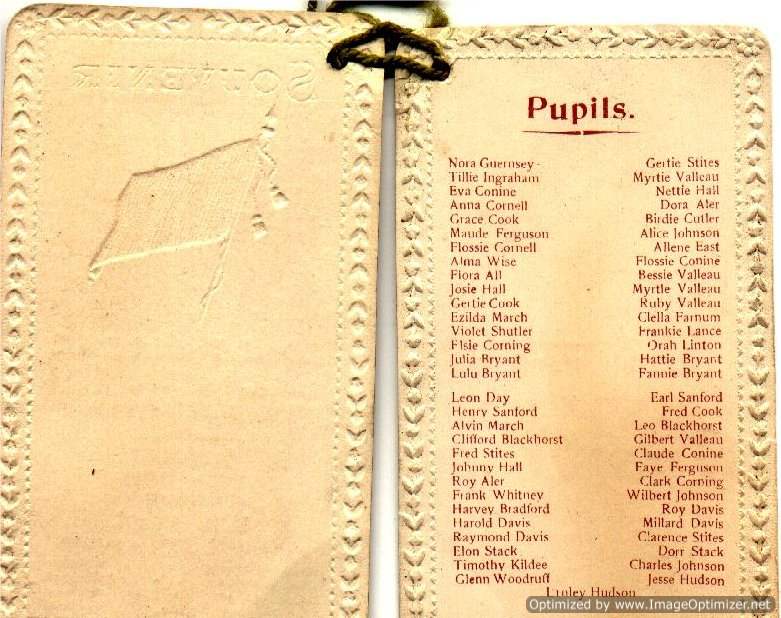 SOUVENIR
Pupils.
Nora Guernsey- Gertie Stites
Tillie Ingraham Myrtie Valleau
Eva Conine Nettie Hall
Anna Cornell Dora Aler
Grace Cook Birdie Cutler
Maude Ferguson Alice Johnson
Flossie Cornell Allene East
Alma Wise Flossie Conine
Flora All Bessie Valleau
Josie Hall Myrtle Valleau
Gertie Cook Ruby Valleau
Ezilda March Clella Farnum
Violet Shutler Frankie Lance
Elsie Corning Orah Linton
Julia Bryant Hattie Bryant
Lulu Bryant Fannie Bryant
Leon Day Earl Sanford
Henry Sanford Fred Cook
Alvin March Leo Blackhorst
Clifford Blackhorst Gilbert Valleau
Fred Stites Claude Conine
Johnny Hall Faye Ferguson
Roy Aler Clark Corning
Frank Whitney Wilbert Johnson
Harvey Bradford Roy Davis
Harold Davis Millard Davis
Raymond Davis Clarence Stites
Elon Stack Dorr Stack
Timothy Kildee Charles Johnson
Glenn Woodruff Jesse Hudson
Hudson
Optimized by www.ImageOptimizer.net